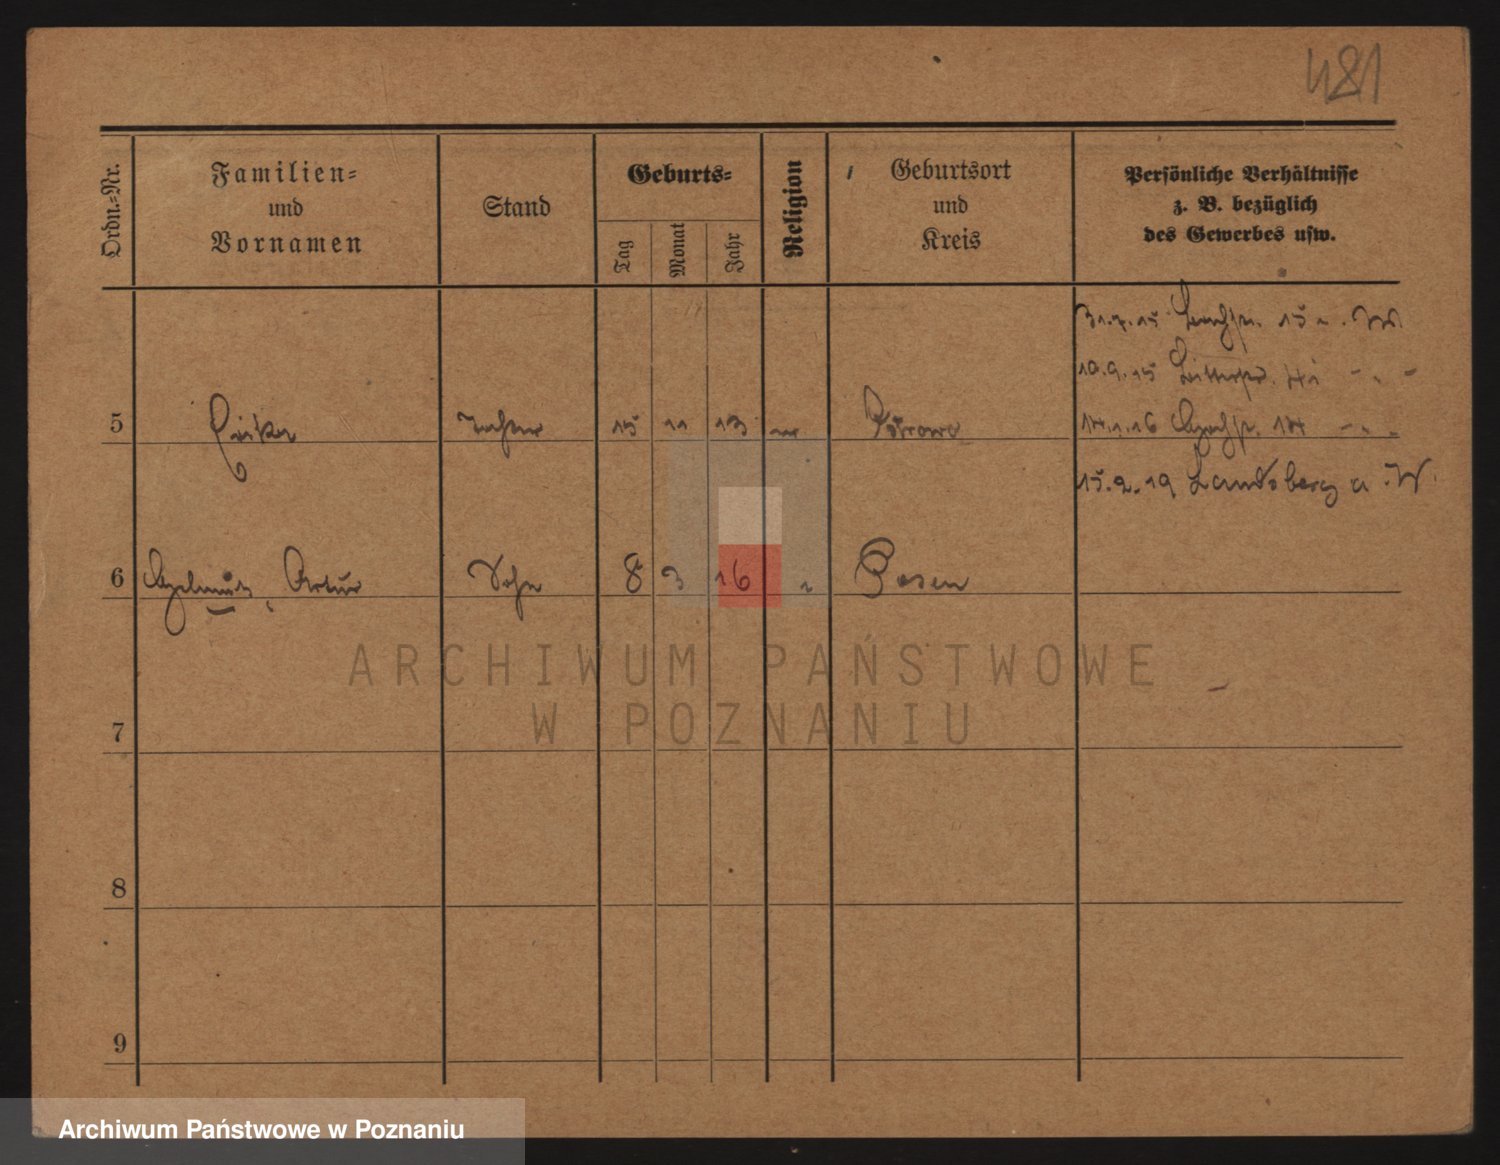 481
Ordn.=Nr.
Familien=
und
Vornamen
Stand
Geburts=
Tag
Monat
Jahr
Religion
Geburtsort
und
Kreis
Persönliche Verhältnisse
z. B. bezüglich
des Gewerbes usw.
31.7.15 15
10.9.15
5 Tochter 15 11 13
14.1.16 14
15.2.19 Landsberg a. W.
6 Helmut, Artur Sohn 8 3 16 " Posen
ARCHIWUM PAŃSTWOWE
W POZNANIU
7
8
9
Archiwum Państwowe w Poznaniu